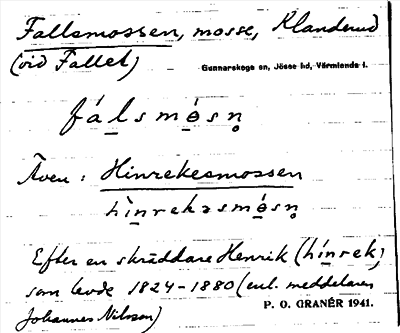 Fallsmossen, mosse, Klanderud
(vid Fallet)
Gunnarskogs sn, Jösse hd, Värmlands l.
fálsmósn̥
Även: Hinrekesmossen
hìnrekəsmósn̥
Efter en skräddare Henrik (hínrek)
som levde 1824-1880 (enl. meddelaren
P. O. GRANÉR 1941.
Johannes Nilsson)